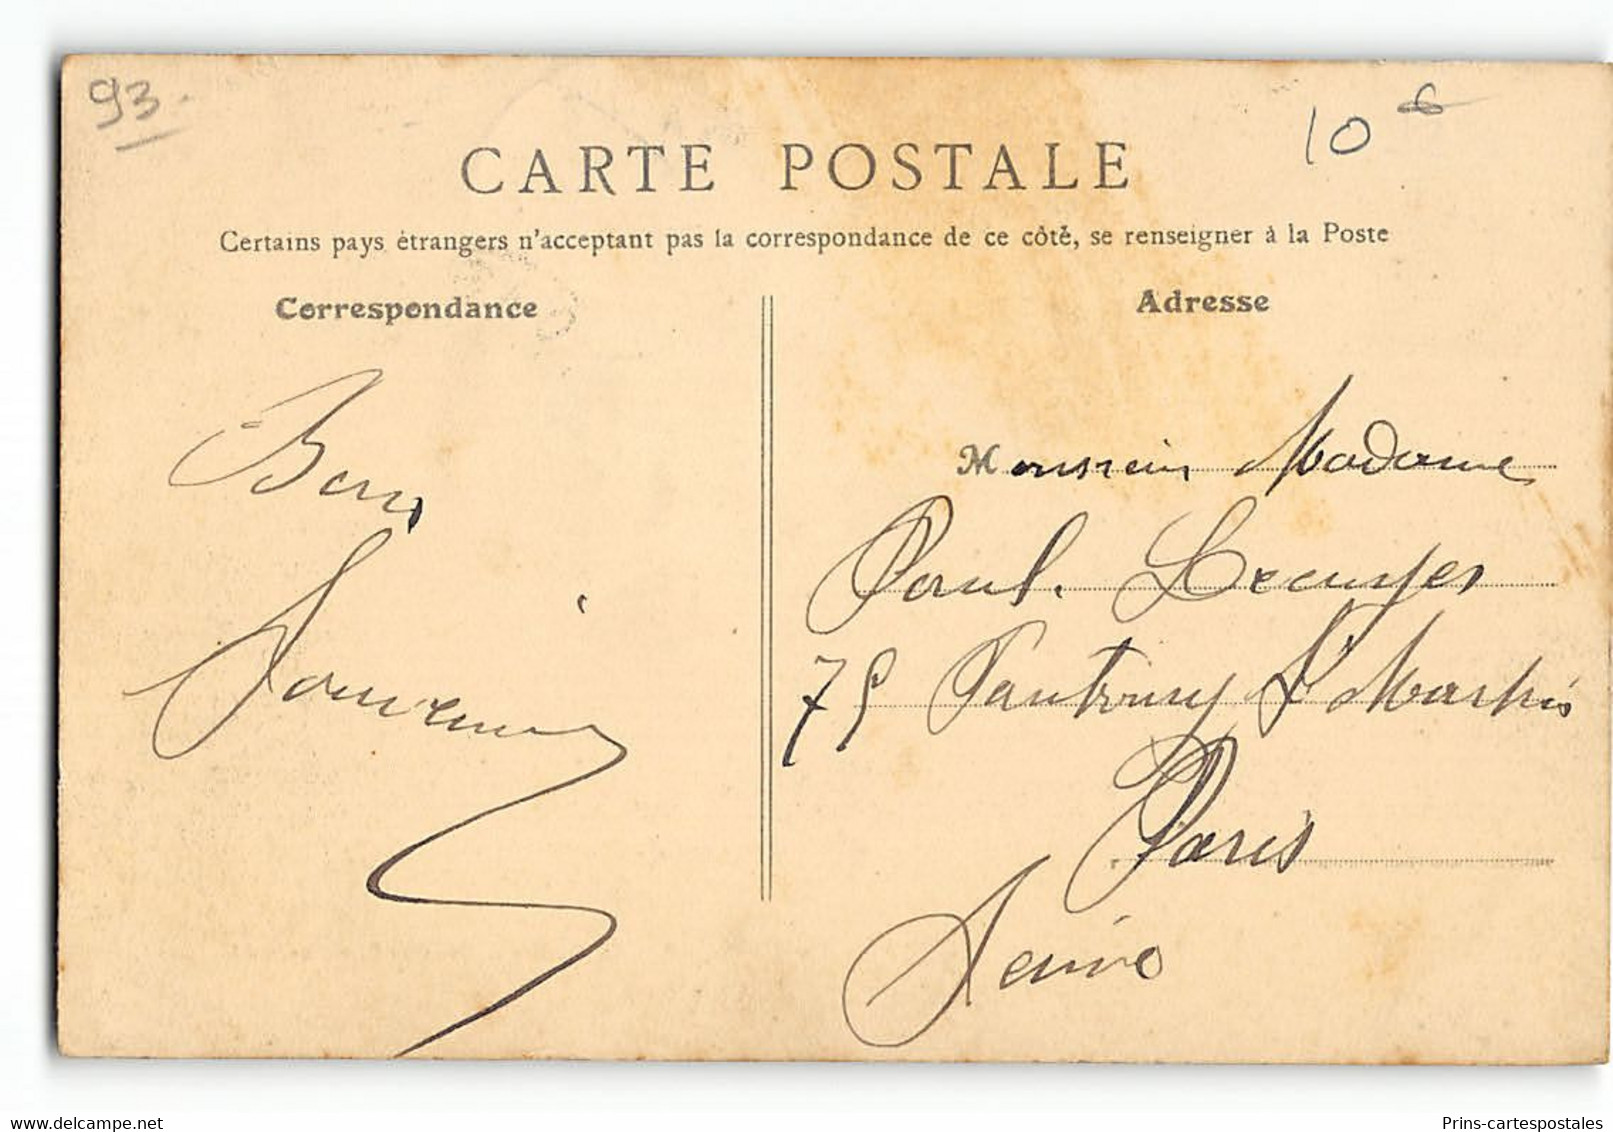 93.
10
CARTE POSTALE
Certains pays étrangers n'acceptant pas la correspondance de ce côté, se renseigner à la Poste
Correspondance
Adresse
Bons
Souvenirs
Monsieur Madame
Paul Lecuyer
75 Faubourg St Martin
Paris
Seine
delcampe.net
Prins-cartespostales